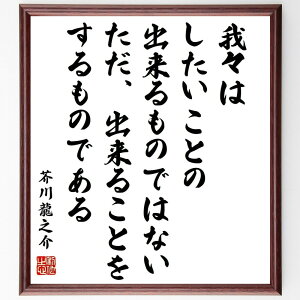 我々は
したいことの
出来るものではない
ただ、出来ることを
するものである
芥川龍之介